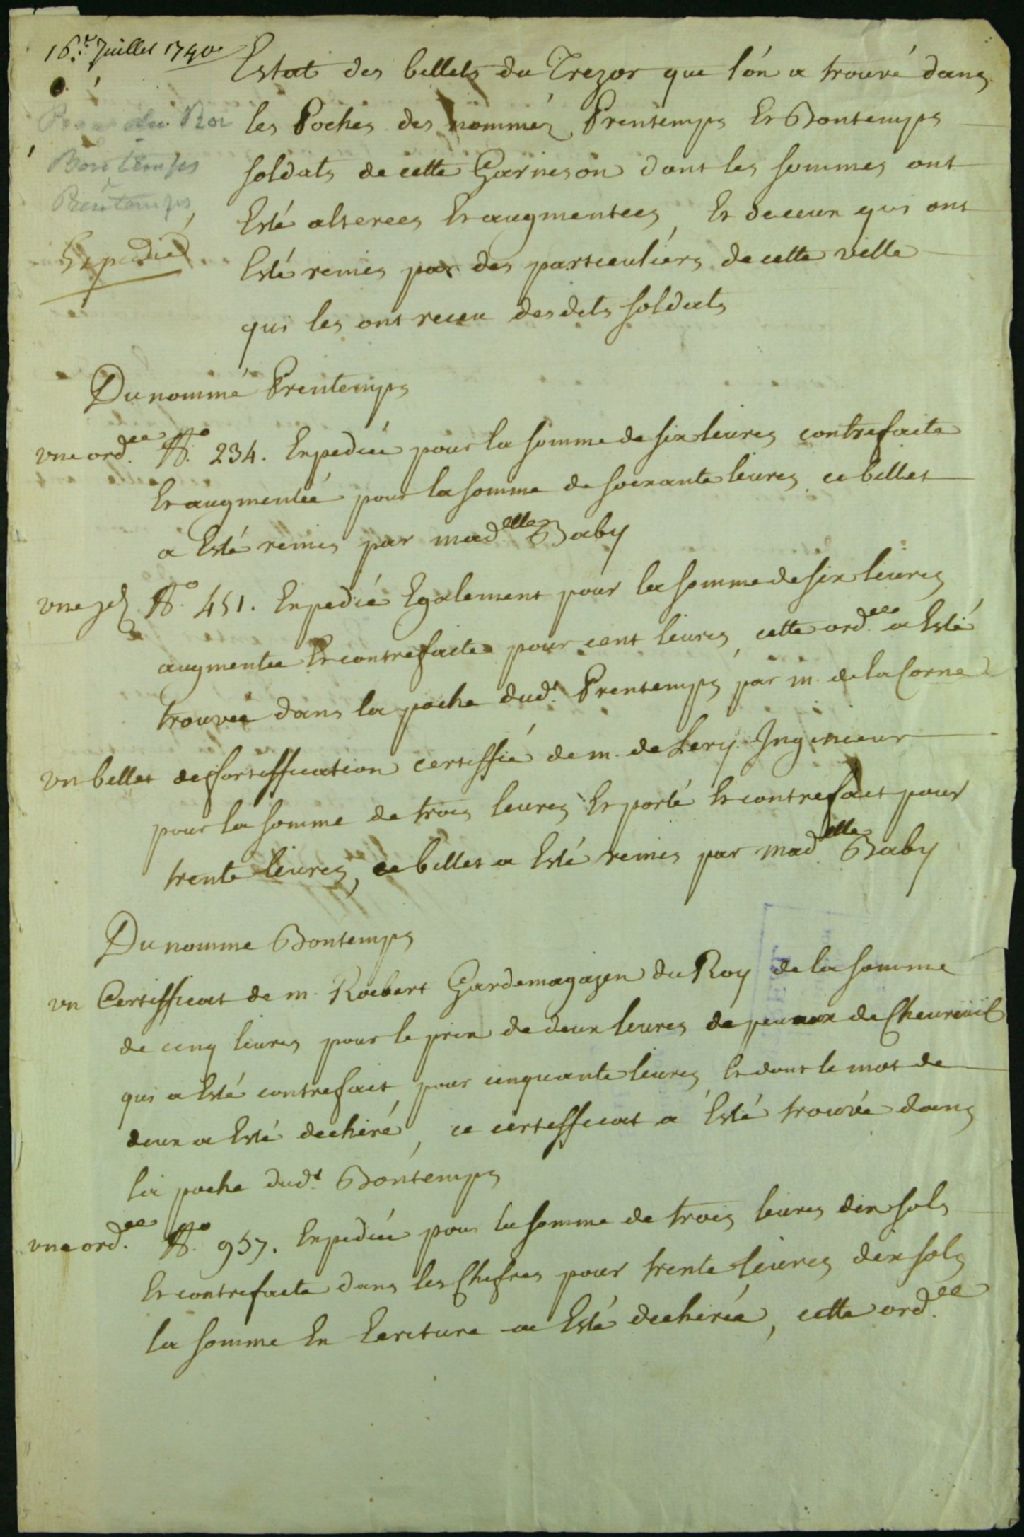 16e. Juillet 1740
Estat des billets du Trezor que l'on a trouvé dans
les Poches des nommez Prentemps Et Bontemps
soldats de cette Garnison dont les sommes ont
Esté alterees Et augmentees, Et de ceux qui ont
Esté remis par des particuliers de cette ville
qui les ont receu desdits soldats
du Roi
Bontemps
Prentemps
Expedié
Du nommé Prentemps
une ordce. No. 234. Expediée pour la somme de six livres contrefaite
Et augmentée pour la somme de soixante livres, ce billet
a Esté remis par madelle Baby
une No. 451. Expedié Egalement pour la somme de six livres
augmentée Et contrefaite pour cent livres, cette ordce. a Esté
trouvée dans la poche dudt. Prentemps par m. de la Corne
un billet de fortiffication certiffié de m. de Lery Ingenieur
pour la somme de trois livres Et porté Et contrefait pour
trente livres, ce billet a Esté remis par madelle Baby
Du nommé Bontemps
un Certifficat de m. Robert Gardemagazin du Roy de la somme
de cinq livres pour le prix de deux livres de peaux de Chevreüil
qui a Esté contrefait pour cinquante livres Et dont le mot de
deux a Esté dechiré, ce certifficat a Esté trouvée dans
la poche dudt. Bontemps
une ordce. No. 957. Expediée pour la somme de trois livres dix sols
Et contrefaite dans les Chifres pour trente livres dix sols
la somme En Ecriture a Esté dechirée, cette ordce.